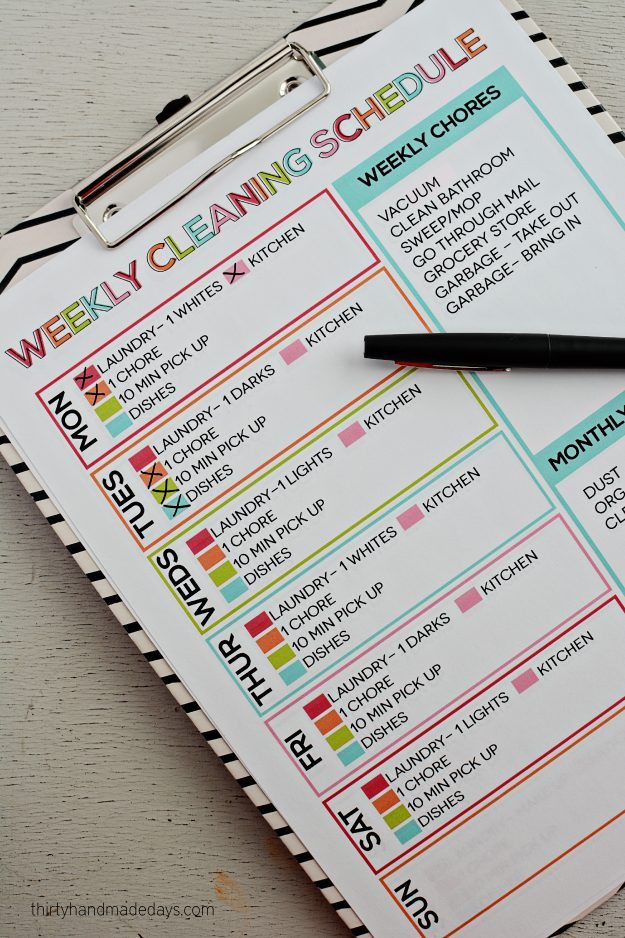 WEEKLY CLEANING SCHEDULE
MON
LAUNDRY- 1 WHITES KITCHEN
1 CHORE
10 MIN PICK UP
DISHES
TUES
LAUNDRY- 1 DARKS KITCHEN
1 CHORE
10 MIN PICK UP
DISHES
WEDS
LAUNDRY- 1 LIGHTS KITCHEN
1 CHORE
10 MIN PICK UP
DISHES
THUR
LAUNDRY- 1 WHITES KITCHEN
1 CHORE
10 MIN PICK UP
DISHES
FRI
LAUNDRY- 1 DARKS KITCHEN
1 CHORE
10 MIN PICK UP
DISHES
SAT
LAUNDRY- 1 LIGHTS KITCHEN
1 CHORE
10 MIN PICK UP
DISHES
SUN
WEEKLY CHORES
VACUUM
CLEAN BATHROOM
SWEEP/MOP
GO THROUGH MAIL
GROCERY STORE
GARBAGE - TAKE OUT
GARBAGE- BRING IN
MONTHLY
DUST
ORG
CLE
thirtyhandmadedays.com